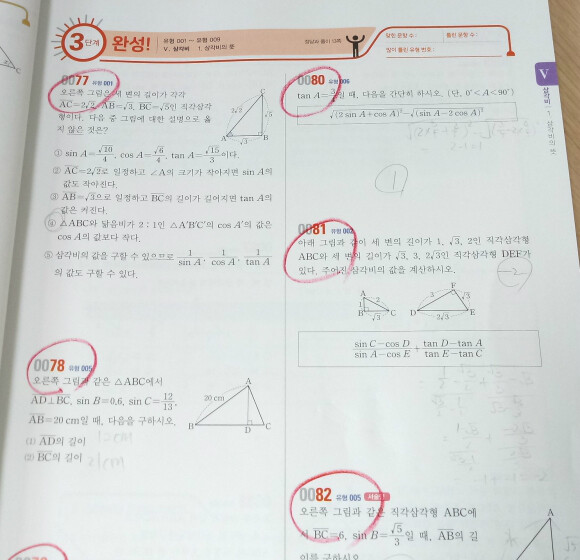 3단계 완성!
유형 001 ~ 유형 009
V. 삼각비 1. 삼각비의 뜻
정답과 풀이 13쪽
맞힌 문항 수 :
틀린 문항 수 :
많이 틀린 유형 번호 :
0077 유형 001
오른쪽 그림은 세 변의 길이가 각각
AC=2√2, AB=√3, BC=√5인 직각삼각
형이다. 다음 중 그림에 대한 설명으로 옳
지 않은 것은?
C
2√2
√5
A
√3
B
① sin A=√10/4, cos A=√6/4, tan A=√15/3이다.
② AC=2√2로 일정하고 ∠A의 크기가 작아지면 sin A의
값도 작아진다.
③ AB=√3으로 일정하고 BC의 길이가 길어지면 tan A의
값은 커진다.
④ △ABC와 닮음비가 2 : 1인 △A'B'C'의 cos A'의 값은
cos A의 값보다 작다.
⑤ 삼각비의 값을 구할 수 있으므로 1/sin A, 1/cos A, 1/tan A
의 값도 구할 수 있다.
0078 유형 005
오른쪽 그림과 같은 △ABC에서
AD⊥BC, sin B=0.6, sin C=12/13,
AB=20 cm일 때, 다음을 구하시오.
(1) AD의 길이 12cm
(2) BC의 길이 21cm
A
20 cm
B
D
C
0080 유형 006
tan A=3/4일 때, 다음을 간단히 하시오. (단, 0°<A<90°)
√(2 sin A+cos A)²−√(sin A−2 cos A)²
1
0081 유형 002
아래 그림과 같이 세 변의 길이가 1, √3, 2인 직각삼각형
ABC와 세 변의 길이가 √3, 3, 2√3인 직각삼각형 DEF가
있다. 주어진 삼각비의 값을 계산하시오.
-2
A
1
2
B
√3
C
F
3
√3
D
2√3
E
sin C−cos D/sin A−cos E + tan D−tan A/tan E−tan C
0082 유형 005 서술형
오른쪽 그림과 같은 직각삼각형 ABC에
서 BC=6, sin B=√5/3일 때, AB의 길
이를 구하시오.
A
V
삼각비
1. 삼각비의 뜻